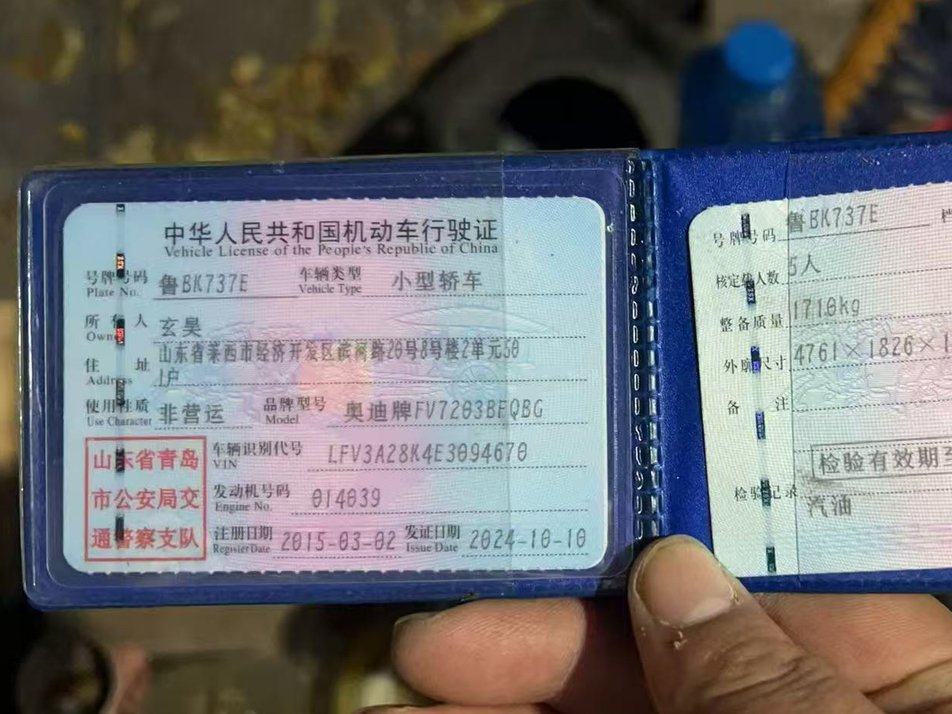 中华人民共和国机动车行驶证
Vehicle License of the People's Republic of China
号牌号码 鲁BK737E 车辆类型 小型轿车
Plate No. Vehicle Type
所有人 玄昊
Owner
住址 山东省莱西市经济开发区滨河路20号8号楼2单元50
Address 1户
使用性质 非营运 品牌型号 奥迪牌FV7203BFQBG
Use Character Model
山东省青岛
市公安局交
通警察支队
车辆识别代号 LFV3A28K4E3094670
VIN
发动机号码 014039
Engine No.
注册日期 2015-03-02 发证日期 2024-10-10
Register Date Issue Date
号牌号码 鲁BK737E
核定载人数 5人
整备质量 1710kg
外廓尺寸 4761×1826×1
备注
检验有效期至
检验记录
汽油